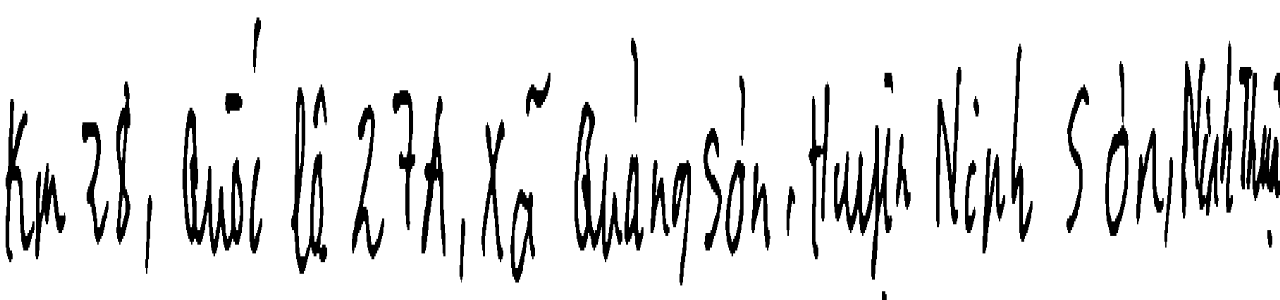 Km 28, Quốc Lộ 27A, Xã Quảng Sơn, Huyện Ninh Sơn, Ninh Thuận